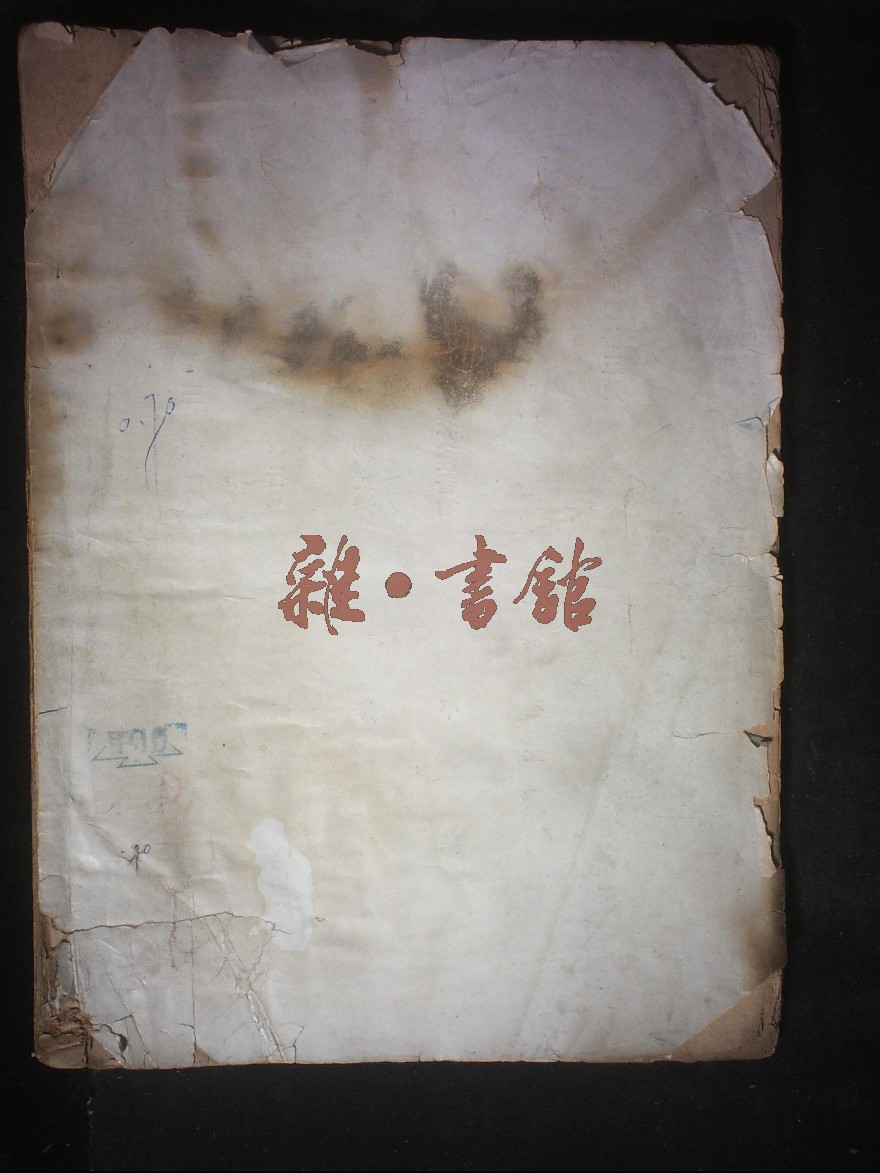 0.70
雜·書館
.70